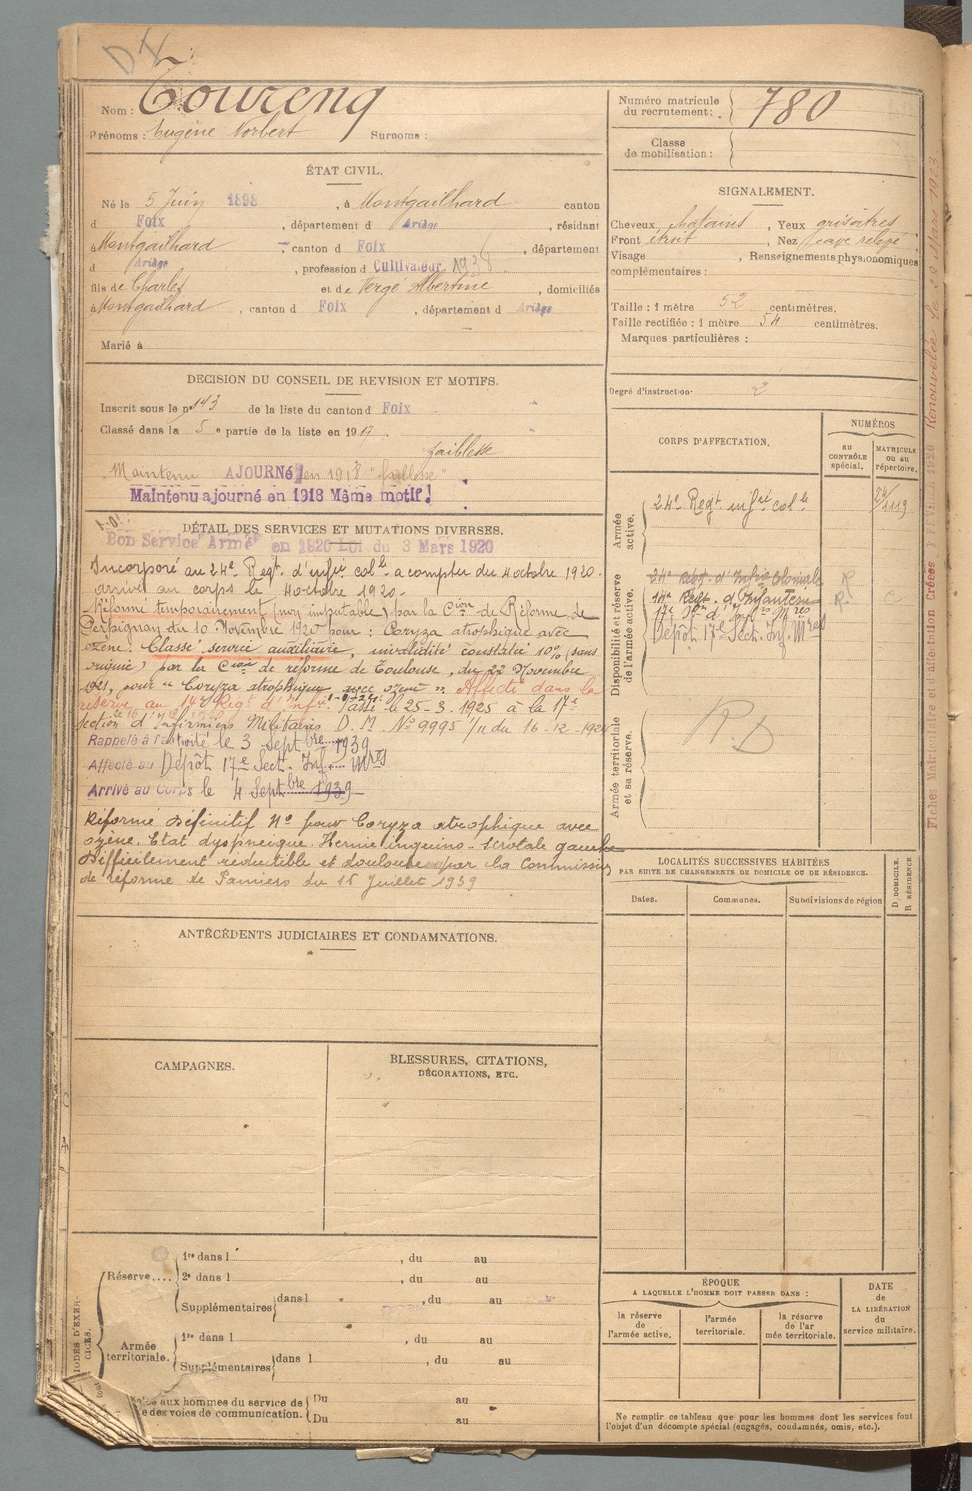 DX
Nom : Toureng
Prénoms : Eugène Norbert Surnoms :
Numéro matricule du recrutement : 780
Classe de mobilisation :
ÉTAT CIVIL.
Né le 5 Juin 1898, à Montgailhard canton
d Foix, département d Ariège, résidant
à Montgailhard, canton d Foix, département
d Ariège, profession d Cultivateur
fils de Charles et de Vergé Albertine, domiciliés
à Montgailhard, canton d Foix, département d Ariège
Marié à
SIGNALEMENT.
Cheveux chatains, Yeux grisâtres
Front étroit, Nez cave relevé
Visage , Renseignements physionomiques
complémentaires :
Taille : 1 mètre 52 centimètres.
Taille rectifiée : 1 mètre 54 centimètres.
Marques particulières :
Degré d'instruction 2
DECISION DU CONSEIL DE REVISION ET MOTIFS.
Inscrit sous le n° 143 de la liste du canton d Foix
Classé dans la 5e partie de la liste en 1917.
faiblesse
Maintenu AJOURNÉ en 1918 "faiblesse"
Maintenu ajourné en 1918 Même motif !
DÉTAIL DES SERVICES ET MUTATIONS DIVERSES.
Bon Service Armé en 1920 Loi du 3 Mars 1920
Incorporé au 24e Regt. d'infie colle a compter du 4 octobre 1920.
arrivé au corps le 4 octobre 1920.
Réformé temporairement (non imputable) par la Cion de Réforme de
Perpignan du 10 Novembre 1920 pour : Coryza atrophique avec
ozène. Classé service auxiliaire, invalidité constatée 10% (sans
origine) par la Cion de réforme de Toulouse, du 22 Novembre
1921, pour "Coryza atrophique avec ozène". Affecté dans la
réserve au 14e Regt d'Infie. Passé le 25-3-1925 à la 17e
Section d'Infirmiers Militaires D.M. No 9995 1/11 du 16-12-192
Rappelé à l'activité le 3 septbre 1939
Affecté au Dépôt 17e Sect. Inf. Mres
Arrivé au Corps le 4 Septbre 1939
Réformé Définitif No pour Coryza atrophique avec
ozène. Etat dyspneique. Hernie inguino-scrotale gauche
difficilement reductible et douloureuse par la Commission
de réforme de Pamiers du 16 Juillet 1939
CORPS D'AFFECTATION.
NUMÉROS
AU CONTRÔLE spécial.
MATRICULE OU AU répertoire.
Armée active.
24e Regt infie colle
1119
Disponibilité et réserve de l'armée active.
24e Regt d'Infie Coloniale R
14e Regt. d'Infanterie R. C
17e Son d'Infirs Mres
Dépôt 17e Sect. Inf. Mres
Armée territoriale et sa réserve.
R.D
Renouvelée le 28 Mars 1923
Fiches Matriculaire et d'affectation Créées
LOCALITÉS SUCCESSIVES HABITÉES
PAR SUITE DE CHANGEMENTS DE DOMICILE OU DE RÉSIDENCE.
Dates.
Communes.
Subdivisions de région
D DOMICILE.
R RÉSIDENCE.
ANTÉCÉDENTS JUDICIAIRES ET CONDAMNATIONS.
CAMPAGNES.
BLESSURES, CITATIONS,
DÉCORATIONS, ETC.
IODES D'EXER-
CICES.
Réserve....
1re dans l , du au
2e dans l , du au
Supplémentaires dans l , du au
Armée territoriale.
1re dans l , du au
Supplémentaires dans l , du au
aux hommes du service de
e des voies de communication.
Du au
Du au
ÉPOQUE
A LAQUELLE L'HOMME DOIT PASSER DANS :
la réserve de l'armée active.
l'armée territoriale.
la réserve de l'ar mée territoriale.
DATE de LA LIBÉRATION du service militaire.
Ne remplir ce tableau que pour les hommes dont les services font
l'objet d'un décompte spécial (engagés, condamnés, omis, etc.).